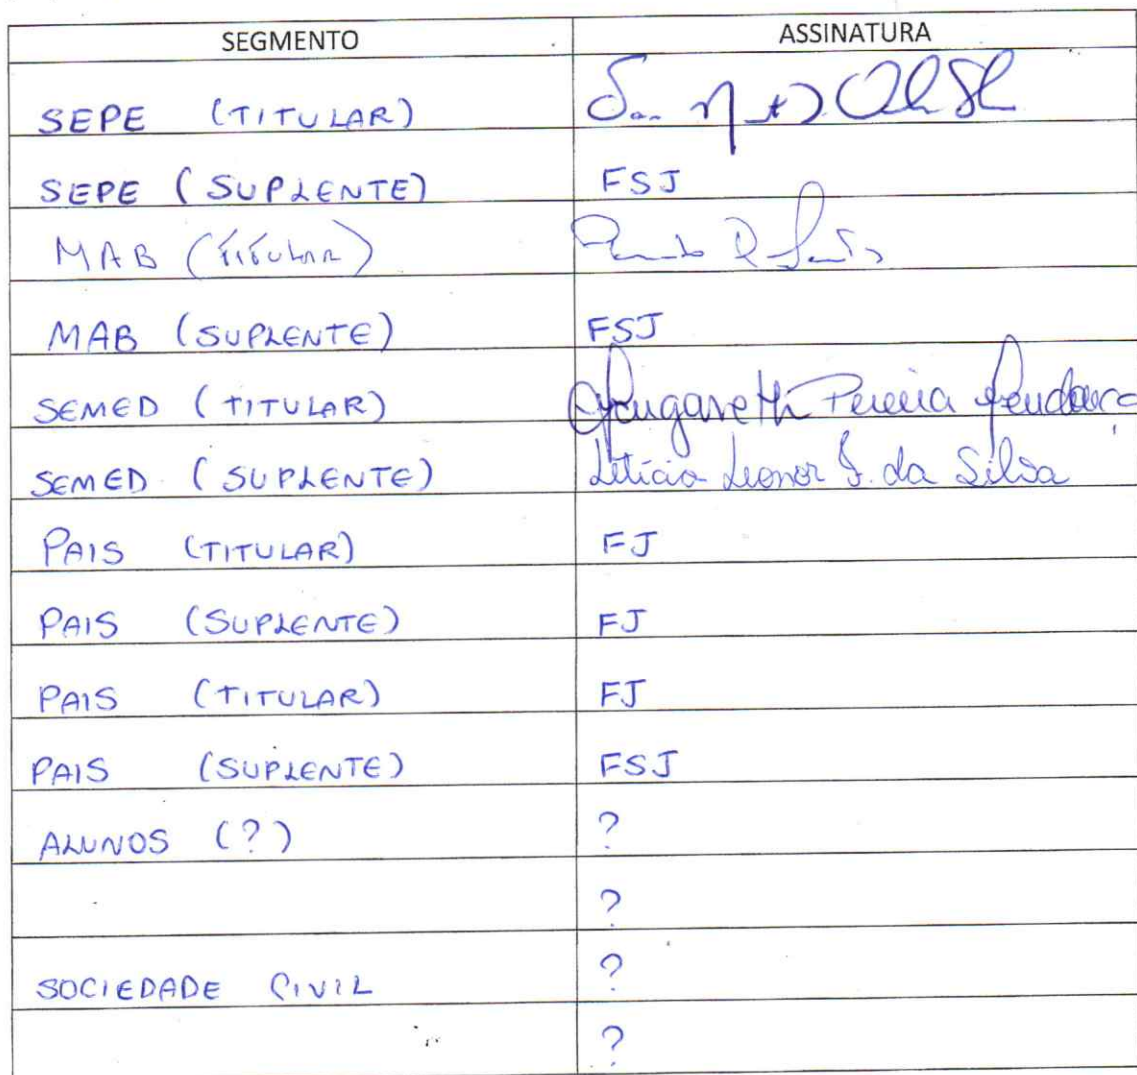 SEGMENTO ASSINATURA
SEPE (TITULAR)
SEPE (SUPLENTE) FSJ
MAB (TITULAR)
MAB (SUPLENTE) FSJ
SEMED (TITULAR) Pereira
SEMED (SUPLENTE) Letícia Leonor S. da Silva
PAIS (TITULAR) FJ
PAIS (SUPLENTE) FJ
PAIS (TITULAR) FJ
PAIS (SUPLENTE) FSJ
ALUNOS (?) ?
?
SOCIEDADE CIVIL ?
?